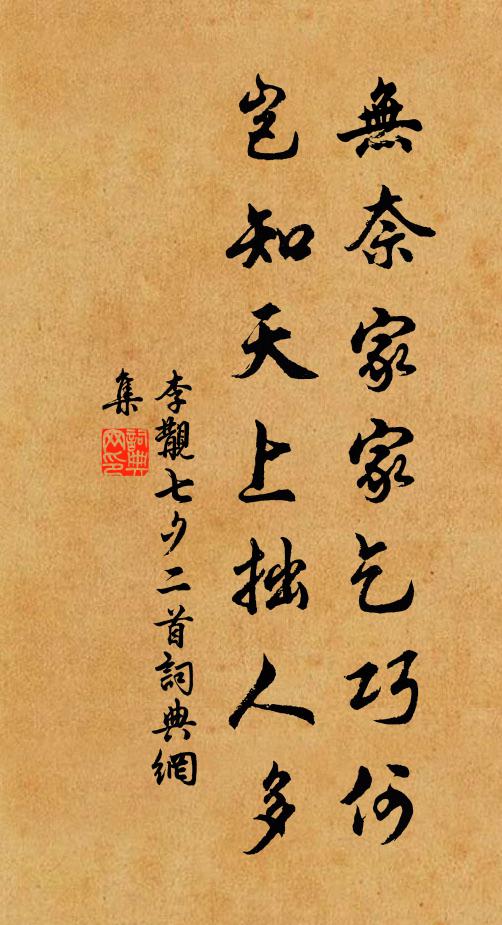 無奈家家乞巧何
豈知天上拙人多
李覯七夕二首詞典網
集
詞典
网印